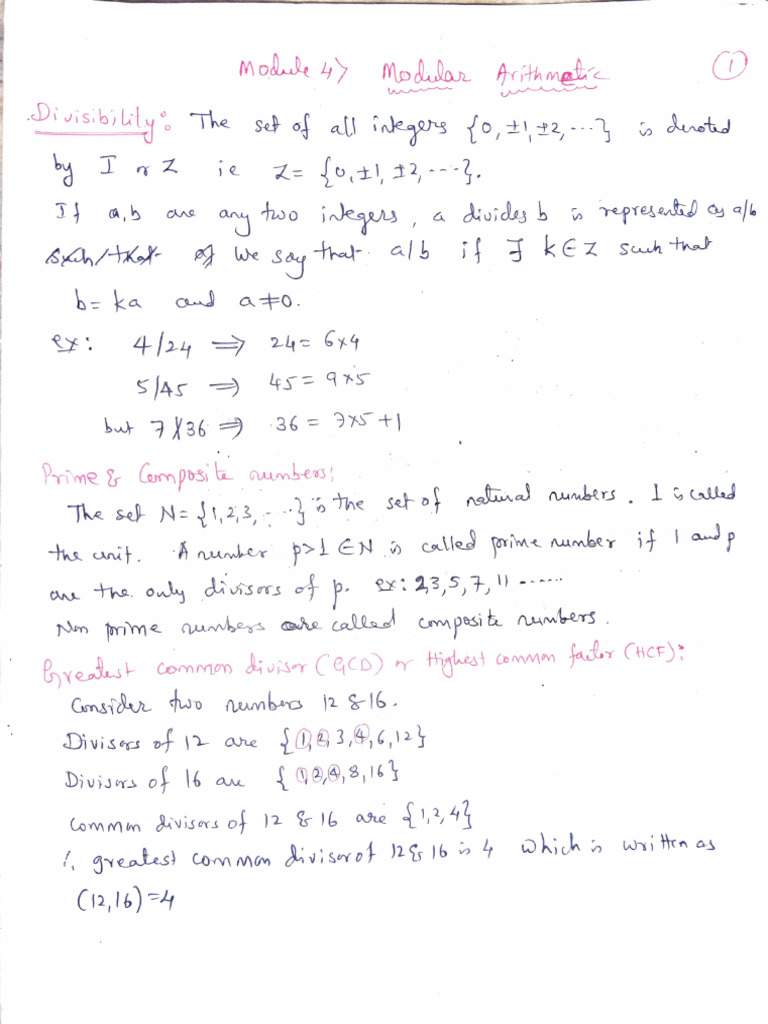 Module 4> Modular Arithmetic 1
Divisibility: The set of all integers {0, ±1, ±2, ...} is denoted
by I or Z ie Z = {0, ±1, ±2, ...}.
If a,b are any two integers, a divides b is represented as a/b
We say that a/b if ∃ k ∈ Z such that
b = ka and a ≠ 0.
ex: 4/24 ⇒ 24 = 6x4
5/45 ⇒ 45 = 9x5
but 7∤36 ⇒ 36 = 7x5+1
Prime & Composite numbers:
The set N = {1,2,3, ...} is the set of natural numbers. 1 is called
the unit. A number p>1 ∈ N is called prime number if 1 and p
are the only divisors of p. ex: 2,3,5,7,11 ......
Non prime numbers are called composite numbers.
Greatest common divisor (GCD) or Highest common factor (HCF):
Consider two numbers 12 & 16.
Divisors of 12 are {1,2,3,4,6,12}
Divisors of 16 are {1,2,4,8,16}
Common divisors of 12 & 16 are {1,2,4}
∴ greatest common divisor of 12 & 16 is 4 which is written as
(12,16)=4